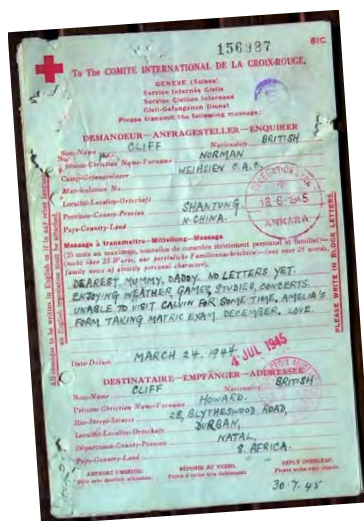 156987
61C
To The COMITÉ INTERNATIONAL DE LA CROIX-ROUGE,
GENÈVE (Suisse).
Service Internés Civils
Service Civilian Internees
Civil-Gefangenen Dienst
Please transmit the following message:
DEMANDEUR—ANFRAGESTELLER—ENQUIRER
Nom-Name CLIFF Nationality BRITISH
Prénom-Christian Name-Vorname NORMAN
Camp-Gefangenlager WEIHSIEN C.A.C.
Matriculation No.
Localité-Locality-Ortschaft
Province-County-Provinz SHANTUNG
Pays-Country-Land N-CHINA.
18 6 1945
ANKARA
Message à transmettre—Mitteilung—Message
(25 mots au maximum, nouvelles de caractère strictement personnel et familial)—
(nicht über 25 Worte, nur persönliche Familiennachrichten)—(not over 25 words,
family news of strictly personal character).
DEAREST MUMMY, DADDY. NO LETTERS YET.
ENJOYING WEATHER, GAMES, STUDIES, CONCERTS.
UNABLE TO VISIT CALVIN FOR SOME TIME. AMELIA'S
FORM TAKING MATRIC EXAM DECEMBER. LOVE.
PLEASE WRITE IN BLOCK LETTERS
Date-Datum MARCH 24, 1944
4 JUL 1945
DESTINATAIRE—EMPFÄNGER—ADDRESSEE
Nom-Name CLIFF Nationality BRITISH
Prénom-Christian Name-Vorname HOWARD.
Rue-Street-Strasse 28, BLYTHESWOOD ROAD,
Localité-Locality-Ortschaft DURBAN,
Département-County-Provinz NATAL
Pays-Country-Land S. AFRICA.
ANTWORT UMSEITIG.
RÉPONSE AU VERSO.
REPLY OVERLEAF.
Please write very clearly.
30.7.45